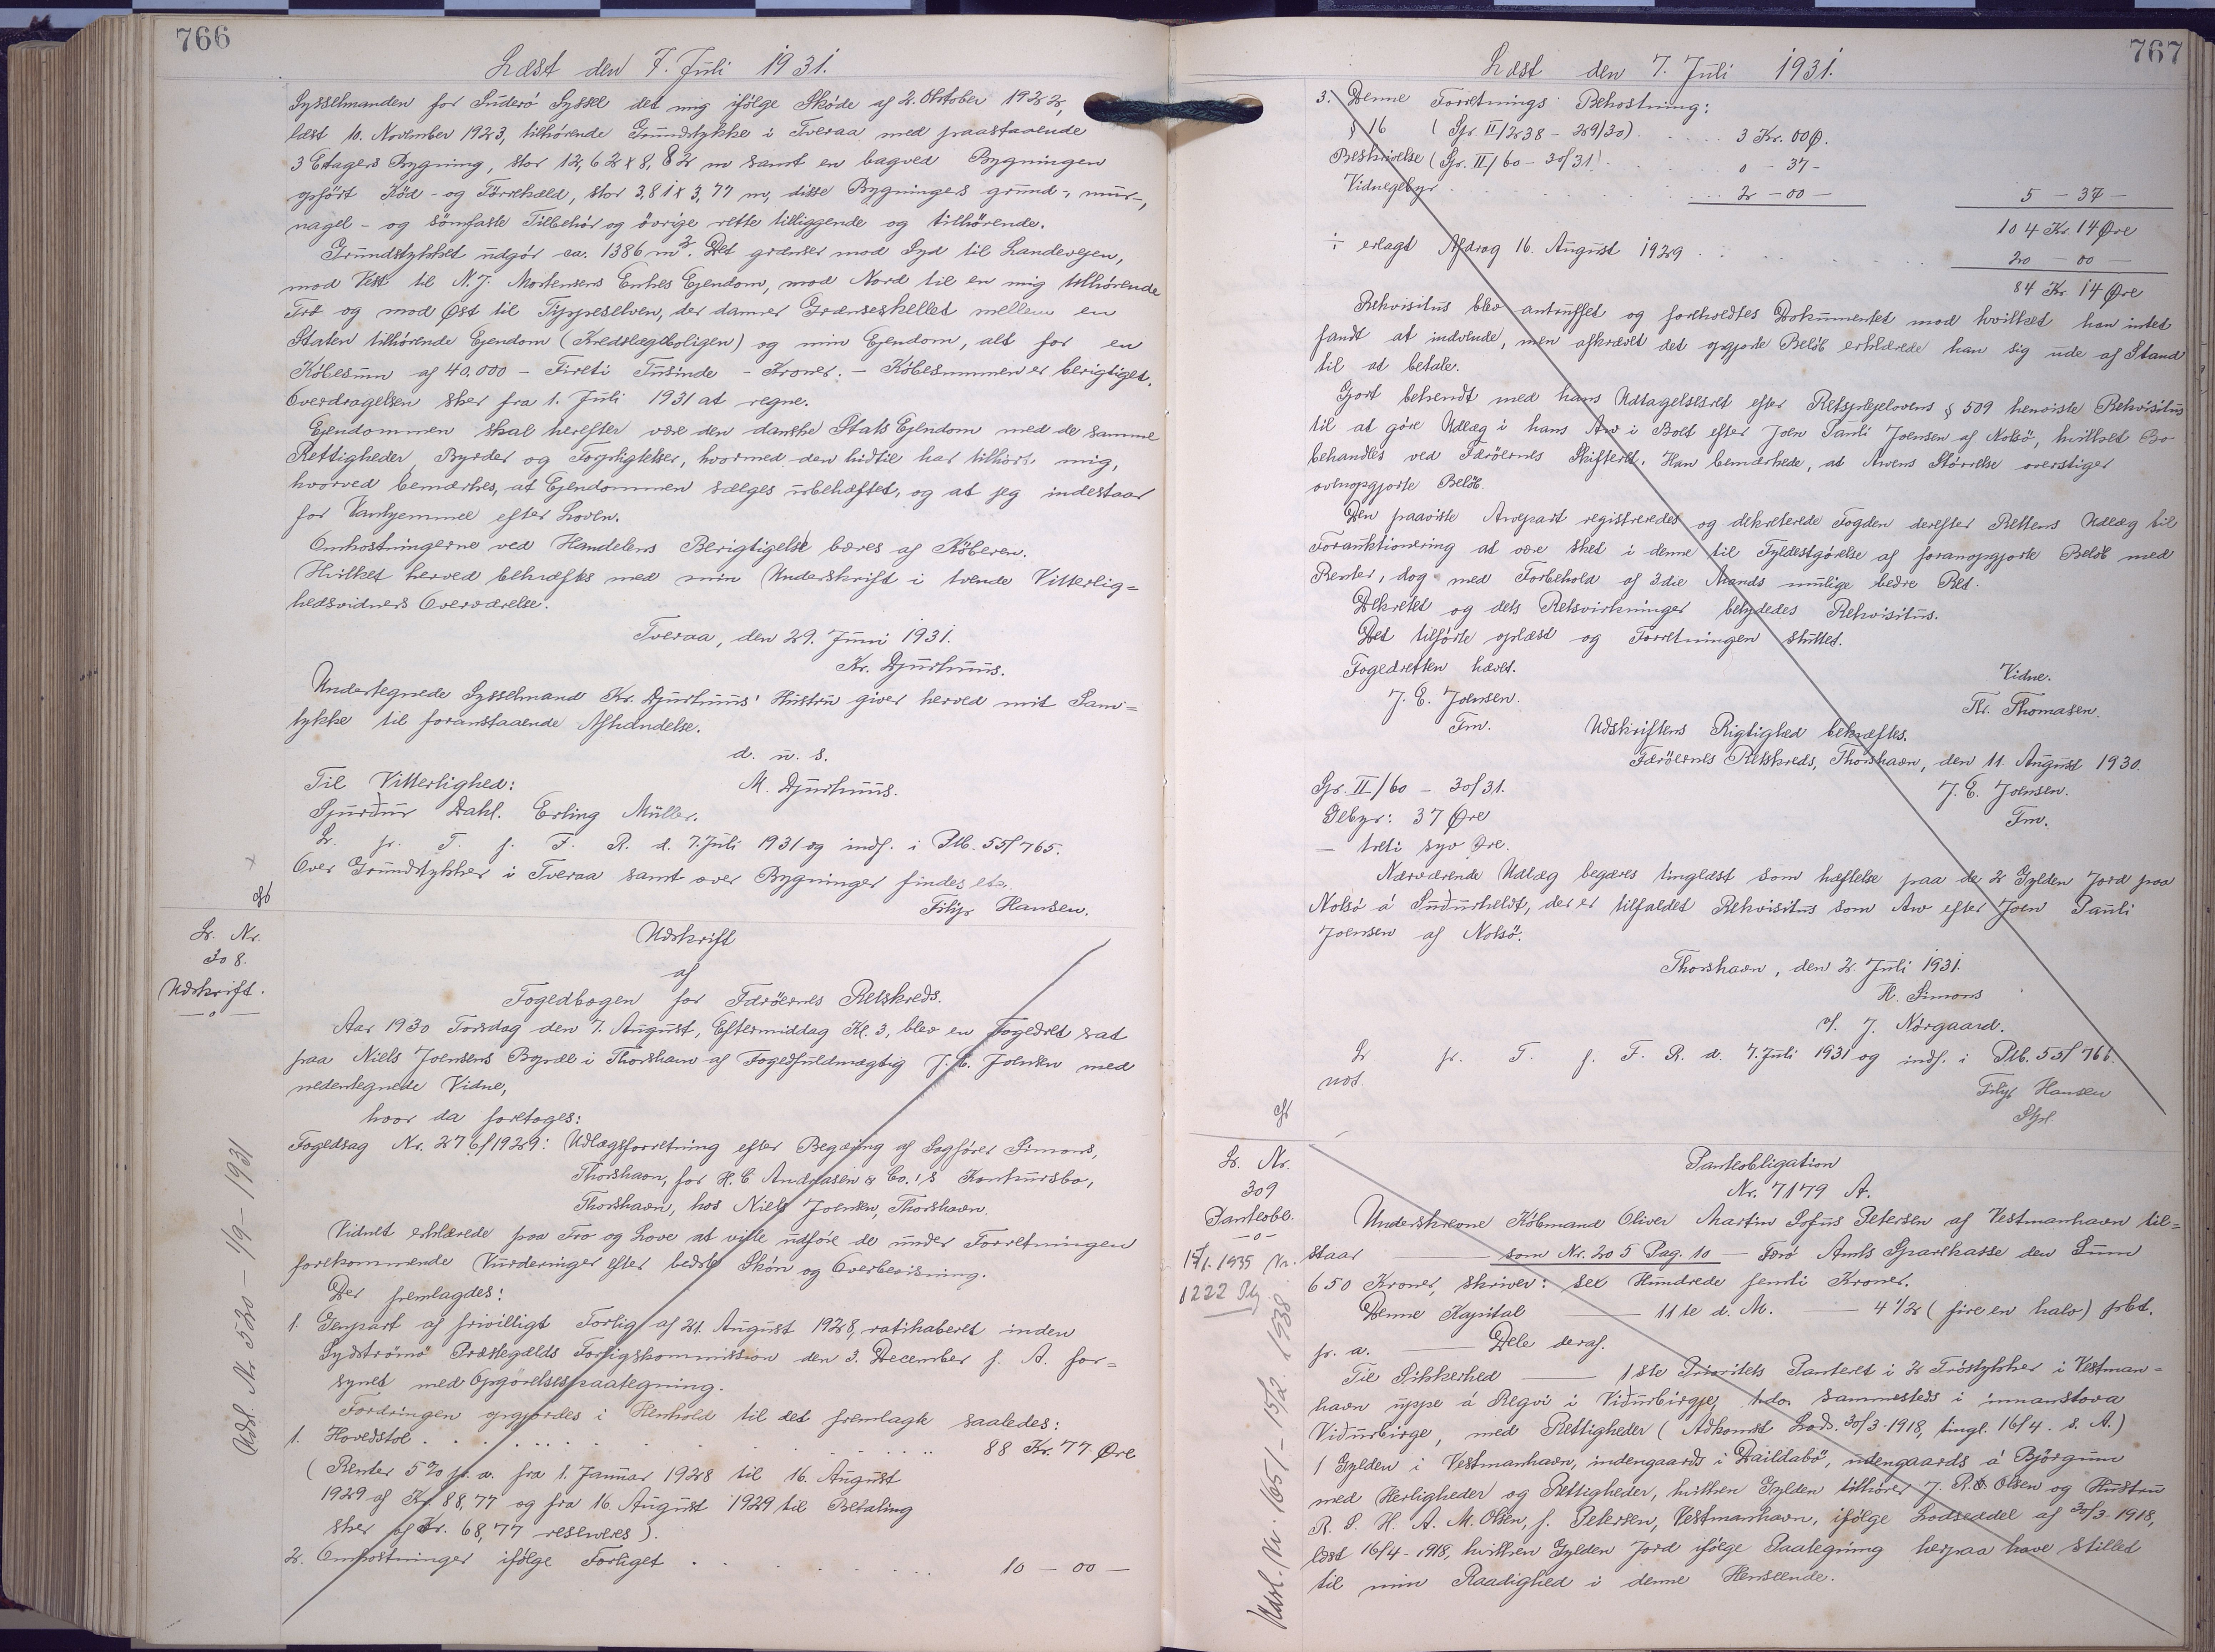 766
Læst den 7. Juli 1931.
Sysselmanden for Suderö Syssel det mig ifölge Sköde af 2. Oktober 1922,
læst 10. November 1923, tilhörende Grundstykke i Tveraa med paastaaende
3 Etagers Bygning, stor 12,62 x 8,82 m samt en bagved Bygningen
opfört Köd- og Törrehæld, stor 3,81 x 3,77 m, disse Bygningers grund-, mur-,
nagel- og sömfaste Tilbehör og övrige rette tilliggende og tilhörende.
Grundstykket udgör ca. 1386 m². Det grænser mod Syd til Landevejen,
mod Vest til N. J. Mortensens Enkes Ejendom, mod Nord til en mig tilhörende
Trö og mod Øst til Typpeselven, der danner Grænseskellet mellem en
Staten tilhörende Ejendom (Kredslægeboligen) og min Ejendom, alt for en
Köbesum af 40.000 - Fireti Tusinde - Kroner. - Köbesummen er berigtiget.
Overdragelsen sker fra 1. Juli 1931 at regne.
Ejendommen skal herefter være den danske Stats Ejendom med de samme
Rettigheder, Byrder og Forpligtelser, hvormed den hidtil har tilhört mig,
hvorved bemærkes, at Ejendommen sælges ubehæftet, og at jeg indestaar
for Vanhjemmel efter Loven.
Omkostningerne ved Handelens Berigtigelse bæres af Köberen.
Hvilket herved bekræftes med min Underskrift i tvende Vitterlig=
hedsvidners Overværelse.
Tveraa, den 29. Juni 1931.
Kr. Djurhuus.
Undertegnede Sysselmand Kr. Djurhuus' Hustru giver herved mit Sam=
tykke til foranstaaende Afhændelse.
d. u. s.
Til Vitterlighed: M. Djurhuus.
Sjurður Dahl. Erling Müller.
L. p. T. f. F. R. d. 7. Juli 1931 og indf. i Ptb. 55/765.
Over Grundstykker i Tveraa samt over Bygninger findes etc.
Filip Hansen.
L. Nr.
308.
Udskrift.
Udskrift
af
Fogedbogen for Færöernes Retskreds.
Aar 1930 Torsdag den 7. August, Eftermiddag Kl. 3, blev en Fogedret sat
paa Niels Joensens Bopæl i Thorshavn af Fogedfuldmægtig J. E. Joensen med
nedentegnede Vidne,
hvor da foretoges:
Fogedsag Nr. 276/1929: Udlægsforretning efter Begæring af Sagförer Simons,
Thorshavn, for H. C. Andreasen & Co.'s Konkursbo,
Thorshavn, hos Niels Joensen, Thorshavn.
Vidnet erklærede paa Tro og Love at ville udföre de under Forretningen
forekommende Vurderinger efter bedste Skön og Overbevisning.
Der fremlagdes:
1. Genpart af frivilligt Forlig af 21. August 1928, ratihaberet inden
Sydströmö Præstegælds Forligskommission den 3. December s. A. for=
synet med Opgörelsespaategning.
Fordringen opgjordes i Henhold til det fremlagte saaledes:
1. Hovedstol . . . . . . 88 Kr. 77 Øre
(Renter 5% p. a. fra 1. Januar 1928 til 16. August
1929 af Kr. 88,77 og fra 16. August 1929 til Betaling
sker af Kr. 68,77 reserveres).
2. Omkostninger ifölge Forliget . . . . . . 10 - 00 -
Udsl. Nr 520 - 1/9 - 1931
767
Læst den 7. Juli 1931.
3. Denne Forretnings Bekostning:
§ 16 (Gr. II/238 - 29/30) . . . . . 3 Kr. 00 Ø.
Beskrivelse (Gr. II/60 - 30/31) . . . . 0 - 37 -
Vidnegebyr . . . . . . 2 - 00 - 5 - 37 -
104 Kr. 14 Øre
÷ erlagt Afdrag 16. August 1929 . . . . . . 20 - 00 -
84 Kr 14 Øre
Rekvisitus blev antruffet og foreholdtes Dokumentet mod hvilket han intet
fandt at indvende, men afkrævet det opgjorte Belöb erklærede han sig ude af Stand
til at betale.
Gjort bekendt med hans Udtagelsesret efter Retsplejelovens § 509 henviste Rekvisitus
til at göre Udlæg i hans Arv i Boet efter Joen Pauli Joensen af Nolsö, hvilket Bo
behandles ved Færöernes Skifteret. Han bemærkede, at Arvens Störrelse overstiger
ovenopgjorte Belöb.
Den paaviste Arvepart registreredes og dekreterede Fogden derefter Rettens Udlæg til
Foranktionering at være sket i denne til Fyldestgörelse af foranopgjorte Belöb med
Renter, dog med Forbehold af 3die Mands mulige bedre Ret.
Dekretet og dets Retsvirkninger betydedes Rekvisitus.
Det tilförte oplæst og Forretningen sluttet.
Fogedretten hævet.
Vidne.
J. E. Joensen.
Th. Thomasen.
Fm.
Udskriftens Rigtighed bekræftes.
Færöernes Retskreds, Thorshavn, den 11. August 1930.
Gr. II/60 - 30/31. J. E. Joensen.
Gebyr: 37 Øre Fm.
- treti syv Øre.
Nærværende Udlæg begæres tinglæst som hæftelse paa de 2 Gylden Jord paa
Nolsö á Suðurheldt, der er tilfaldet Rekvisitus som Arv efter Joen Pauli
Joensen af Nolsö.
Thorshavn, den 2. Juli 1931.
H. Simons
v/. J. Nörgaard.
L p. T. f. F. R. d. 7. Juli 1931 og indf. i Ptb. 55/766.
not.
Filip Hansen
L. Nr.
309
Panteobl.
Panteobligation
Nr. 7179 A.
Underskrevne Köbmand Oliver Martin Sofus Petersen af Vestmanhavn til=
staar — som Nr. 205 Pag. 10 — Færö Amts Sparekasse den Sum
650 Kroner, skriver: sex Hundrede femti Kroner.
Denne Kapital — 11te d. M. — 4 1/2 (fire en halv) pCt.
p. a. — Dele deraf.
Til Sikkerhed — 1ste Prioritets Panteret i 2 Tröstykker i Vestman-
havn uppe á Regvi i Viðurbirgje, hdo sammesteds i innanstova
Viðurbirge, med Rettigheder (Adkomst Lods. 30/3-1918, tingl. 16/4 s. A.)
1 Gylden i Vestmanhavn, indengaards i Daildabö, udengaards á Björgum
med Herligheder og Rettigheder, hvilken Gylden tilhörer J. R. D. Olsen og Hustru
R. S. H. A. M. Olsen, f. Petersen, Vestmanhavn, ifölge Lodseddel af 30/3-1918,
læst 16/4-1918, hvilken Gylden Jord ifölge Paategning herpaa have stillet
til min Raadighed i denne Henseende.
1222
Udsl. Nr. 1651 - 15/2 1938